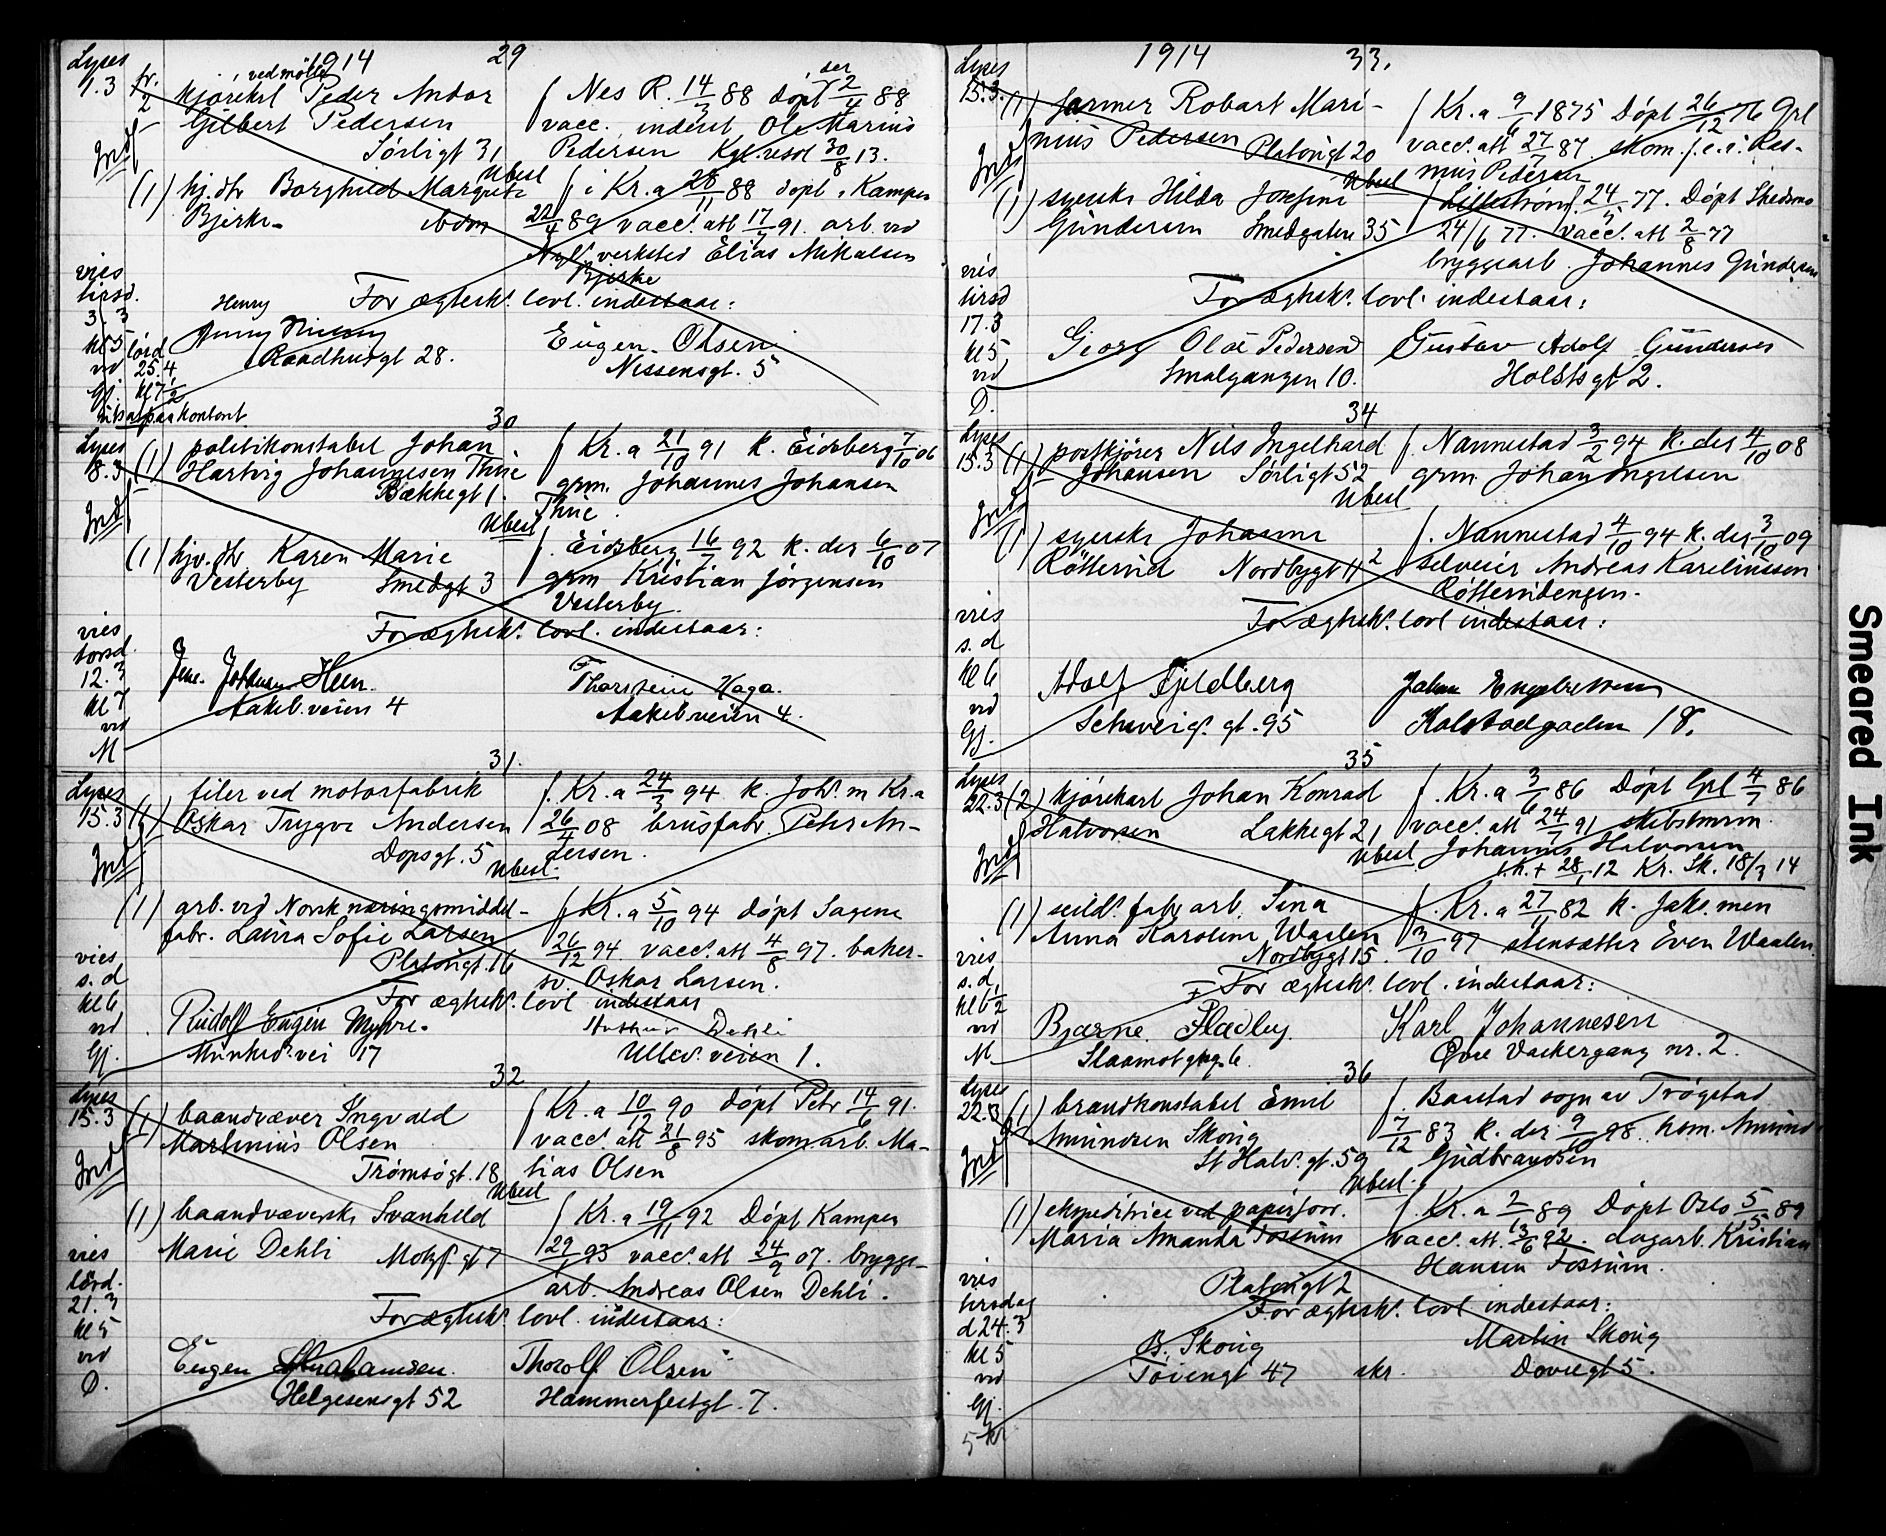 1914
29
Lyses
1.3
ved mölle
kjörekrl Peder Andor
Gilbert Pedersen
Sörligt 31
Nes R. 14/3 88 döpt 2/4 88
vacc. inderst Ole Marius
Pedersen Kgl. resol 30/8 13.
Ubesl
(1) hj.dtr Borghild Margrete
Bjerke
ibdm
i Kr.a 28/11 88 döpt i Kampen
22/4 89 vacc. att 17/7 91. arb. ved
Nyl. verksted Elias Mikalsen
Bjerke
vies
tirsd.
3/3
kl 5
lörd
25.4
kl 7 1/2
vd
Gj.
For ægtesk. lovl. indestaar:
Henry
Raadhusgt 28.
Eugen Olsen
Nissensgt. 5
30
Lyses
8.3
(1) politikonstabel Johan
Hartvig Johannesen Thue
Bækkegt 1.
f Kr.a 21/10 91 k. Eidsberg 7/10 06
grm. Johannes Johansen
Thue.
Ubesl
(1) hjv. dtr Karen Marie
Vesterby Smedgt 3
f. Eidsberg 16/7 92 k. der 6/10 07
grm Kristian Jörgensen
Vesterby
vies
torsd.
12.3
kl 7
vd
M
For ægtesk. lovl. indestaar:
Heen.
Aakeb.veien 4
Thorstein Haga.
Aakeb.veien 4.
31.
Lyses
15.3
(1) filer ved motorfabrik
Oskar Trygve Andersen
Dopsgt. 5
f. Kr.a 24/3 94 k. Joh.s m Kr.a
26/4 08 brusfabr. Peter An-
dersen.
Ubesl.
(1) arb. ved Norsk næringsmiddel-
fabr. Laura Sofie Larsen
Platousgt. 16
f Kr.a 5/10 94 döpt Sagene
26/12 94 vacc. att 4/8 97. baker-
sv. Oskar Larsen.
vies
s.d
kl 6
vd
Gj.
For ægtesk. lovl indestaar
Rudolf Eugen Myhre.
Munked.s vei 17
Arthur Dehli
Ullev. veien 1.
32
Lyses
15.3
(1) baandvæver Ingvald
Martinius Olsen
Tromsögt. 18
f Kr.a 10/12 90 döpt Petr 14/6 91.
vacc. att 21/8 95 skomarb. Ma-
tias Olsen
Ubesl
(1) baandvæverske Svanhild
Marie Dehli Motzf. gt 7
f Kr.a 19/11 92 Döpt Kampen
29/1 93 vacc. att 24/9 07. brygge-
arb. Andreas Olsen Dehli.
vies
lörd.
21.3
kl 5
vd
D.
For ægtesk. lovl. indestaar:
Eugen Abrahamsen.
Helgesensgt 52
Thorolf Olsen
Hammerfestgt. 7.
1914
33.
Lyses
15.3.
(1) former Robart Mari-
nius Pedersen Platousgt 20
f Kr.a 9/6 1875 Döpt 26/12 76 Grl
vacc. att 27/7 87 skom. f.e.s. Ras-
mus Pedersen
Ubesl
(1) syerske Hilda Josefine
Gundersen Smedgaten 35
f Lilleström 24/5 77. Döpt Skedsmo
24/6 77. vacc. att 2/8 77
bryggearb. Johannes Gundersen
vies
tirsd
17.3
kl 5
vd
D.
For ægtesk. lovl. indestaar:
Georg Olai Pedersen
Smalgangen 10.
Gustav Adolf Gundersen
Holstsgt 2.
34
Lyses
15.3
(1) postkjörer Nils Ingelhard
Johansen Sörligt 52
f. Nannestad 3/2 94 k. der 4/10 08
grm Johan Ingelsen
Ubesl
(1) syerske Johanne
Röttervid Nordbygt 11 2
f. Nannestad 4/10 94 k. der 3/10 09
selveier Andreas Karelinssen
Röttervidengen.
vies
s.d
kl 6
vd
Gj.
For ægtesk. lovl indestaar:
Adolf Fjeldberg
Schweig. gt. 95
Johan Engebretsen
Kalstadgaden 18.
35
Lyses
22.3
(2) kjörekarl Johan Konrad
Halvorsen Lakkegt 21
f. Kr.a 3/6 86 Döpt Grl 4/7 86
vacc. att 24/7 91 skibstmrm.
Johannes Halvorsen
e.k. + 28/1 12 Kr. Sk. 18/3 14
Ubesl
(1) seild. fabr arb. Sina
Anna Karoline Waalen
Nordbygt 15.
f. Kr.a 27/11 82 k. Jaks. men
3/10 97 stensætter Even Waalen
vies
s.d
kl 6 1/2
vd
M.
For ægtesk. lovl. indestaar:
Bjarne Fladby
Slaamotgng. 6
Karl Johannesen
Övre Vaskergang nr. 2.
36
Lyses
22.3
(1) brandkonstabel Emil
Amundsen Skoug
St Halv. gt. 59
f. Baastad sogn av Trögstad
7/12 83 k. der 9/10 98. hsm. Amund
Gudbrandsen
Ubesl.
(1) ekspeditrice ved papirforr.
Maria Amanda Fossum
Platougt 2
f. Kr.a 2/2 89 Döpt Oslo 5/5 89
vacc. att. 13/6 92. dagarb. Kristian
Hansen Fossum.
vies
tirsdag
d 24.3
kl 5
vd
Gj.
5 kr
For ægtesk. lovl. indestaar:
B. Skoug
Töiengt 47
skr.
Martin Skoug
Dovregt 5.
Smeared Ink